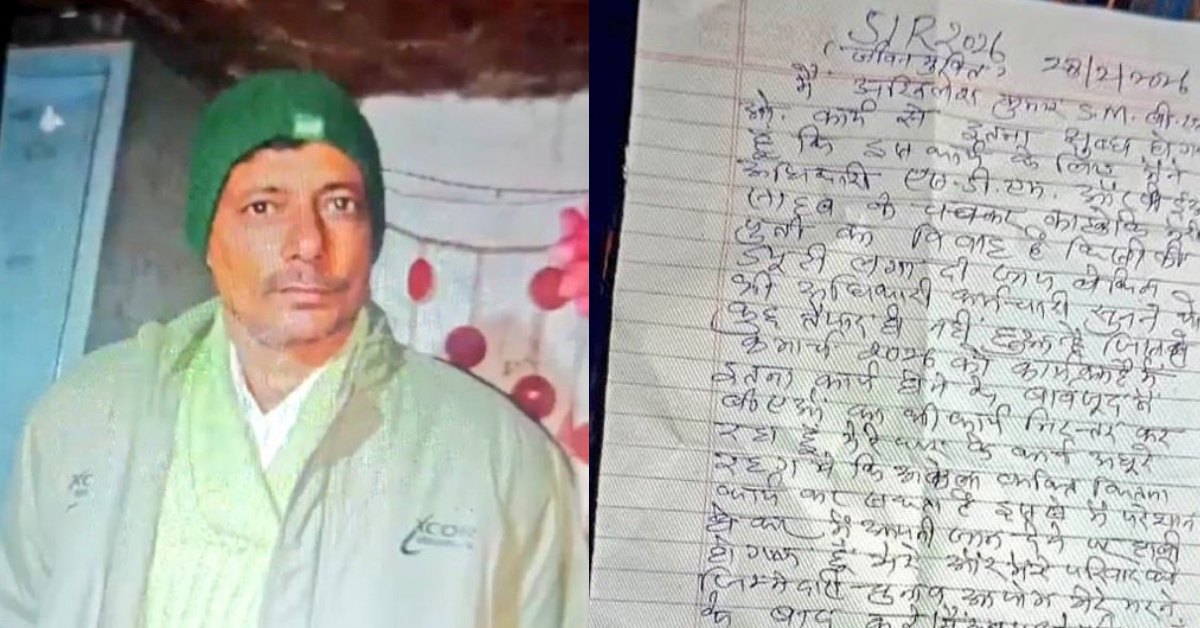 SIR 2026
(जीवन मुक्ति) 28/2/2026
मैं अखिलेश कुमार S.M. बी.एल
ओ. कार्य से इतना क्षुब्ध हो गया
हूँ कि इस कार्य के लिए मैंने
अधिकारी एस.डी.एम. और
साहब के चक्कर काटे कि मेरी
पुत्री का विवाह है किसी की
ड्यूटी लगा दी जाए लेकिन
भी अधिकारी कर्मचारी सुनने को
कुछ तैयार ही नहीं
मार्च 2026 को
इतना कार्य होने के बावजूद में
बीएलओ का भी कार्य निरन्तर कर
रहा हूँ मेरे घर के कार्य अधूरे
रह गये कि अकेला व्यक्ति कितना
कार्य कर सकता है इससे में परेशान
हो कर में अपनी जान देने पर हावी
हो गया हूँ मेरे और मेरे परिवार की
जिम्मेदारी चुनाव आयोग मेरे मरने
के बाद करे मैं
XC
XCO